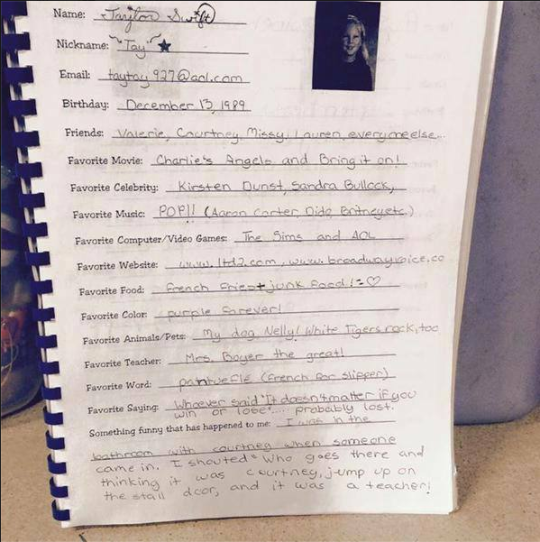 Name: Taylor Swift
Nickname: "Tay" ★
Email: taytay927@aol.com
Birthday: December 13, 1989
Friends: Valerie, Courtney, Missy, Lauren, everyone else
Favorite Movie: Charlie's Angels and Bring it on!
Favorite Celebrity: Kirsten Dunst, Sandra Bullock,
Favorite Music: POP!! (Aaron Carter Dido, Britney etc.)
Favorite Computer/Video Games: The Sims and AOL
Favorite Website: www.ltd2.com, www.broadwayvoice.co
Favorite Food: French Fries + junk food! = ♡
Favorite Color: purple forever!
Favorite Animals/Pets: My dog Nelly! White Tigers rock, too
Favorite Teacher: Mrs. Boyer the great!
Favorite Word: (French for slipper)
Favorite Saying: Whoever said "It doesn't matter if you
win or lose"... probably lost.
Something funny that has happened to me: I was in the
bathroom with courtney when someone
came in. I shouted "who goes there and
thinking it was courtney, jump up on
the stall door, and it was a teacher!